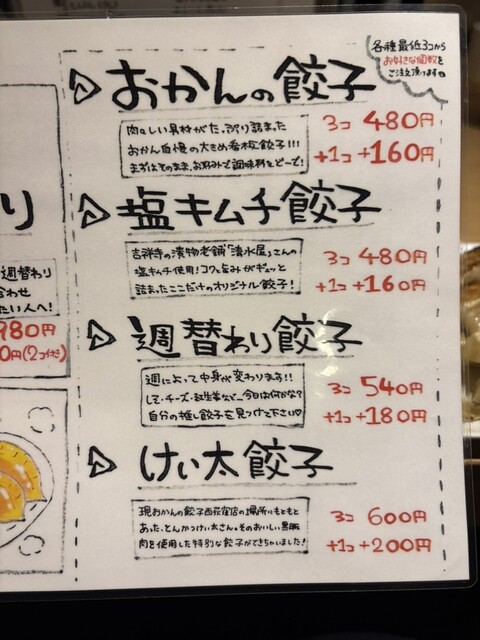 各種最低3コから
お好きな個数を
ご注文頂けます。
おかんの餃子
肉々しい具材がた〜っぷり詰まった
おかん自慢の大きめ看板餃子!!!
まずはそのまま、お好みで調味料をど〜ぞ!
3コ 480円
+1コ +160円
塩キムチ餃子
吉祥寺の漬物老舗「清水屋」さんの
塩キムチ使用!コクと旨みがギュッと
詰まったここだけのオリジナル餃子!
3コ 480円
+1コ +160円
週替わり餃子
週によって中身が変わります!!
しそ・チーズ・紅生姜など…今日は何かな?
自分の推し餃子を見つけて下さい♡
3コ 540円
+1コ +180円
けい太餃子
現おかんの餃子西荻窪店の場所にもともと
あった、とんかつけい太さん。そのおいしい黒豚
肉を使用した特別な餃子ができちゃいました!
3コ 600円
+1コ +200円
り
週替わり
合わせ
たい人へ!
980円
0円(2コ付き)